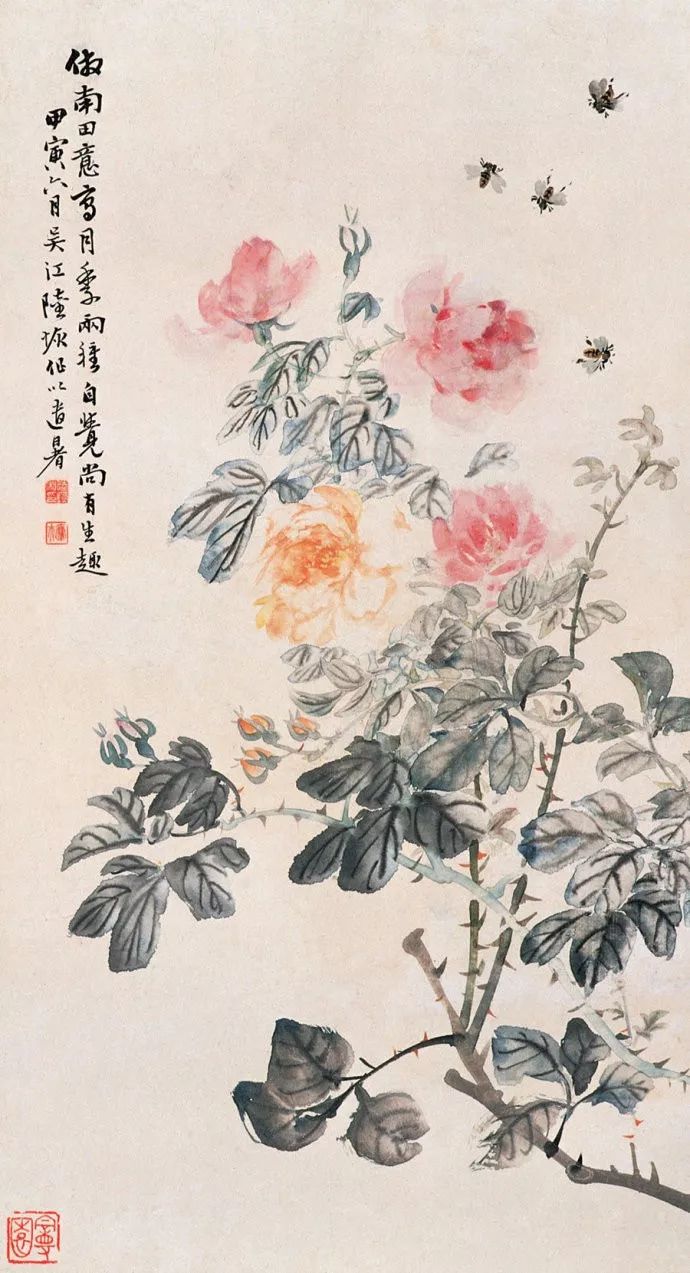 倣南田意寫月季兩種自覺尚有生趣
甲寅六月吳江陸恢作以遣暑